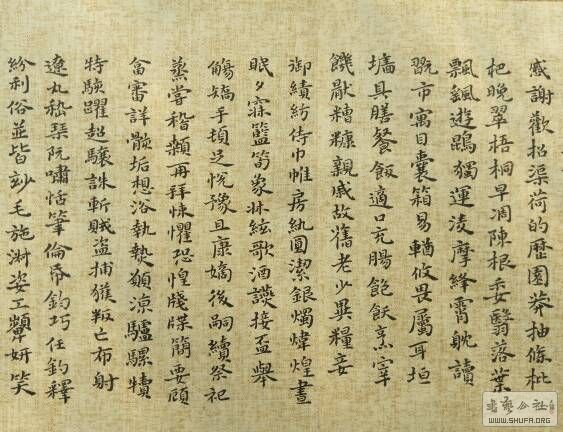 感謝歡招渠荷的歷園莽抽條枇
杷晚翠梧桐早凋陳根委翳落葉
飄颻遊鵾獨運淩摩絳霄耽讀
翫市寓目囊箱易輶攸畏屬耳垣
墻具膳餐飯適口充腸飽飫烹宰
饑猒糟糠親戚故舊老少異糧妾
御績紡侍巾帷房紈圓潔銀燭煒煌晝
眠夕寐籃筍象牀絃歌酒讌接盃舉
觴矯手頓足悅豫且康嫡後嗣續祭祀
蒸嘗稽顙再拜悚懼恐惶牋牒簡要顧
畣審詳骸垢想浴執熱願涼驢騾犢
特駭躍超驤誅斬賊盗捕獲叛亡布射
遼丸嵇琴阮嘯恬筆倫帋鈞巧任釣釋
紛利俗並皆玅毛施淑姿工顰妍笑
WWW.SHUFA.ORG